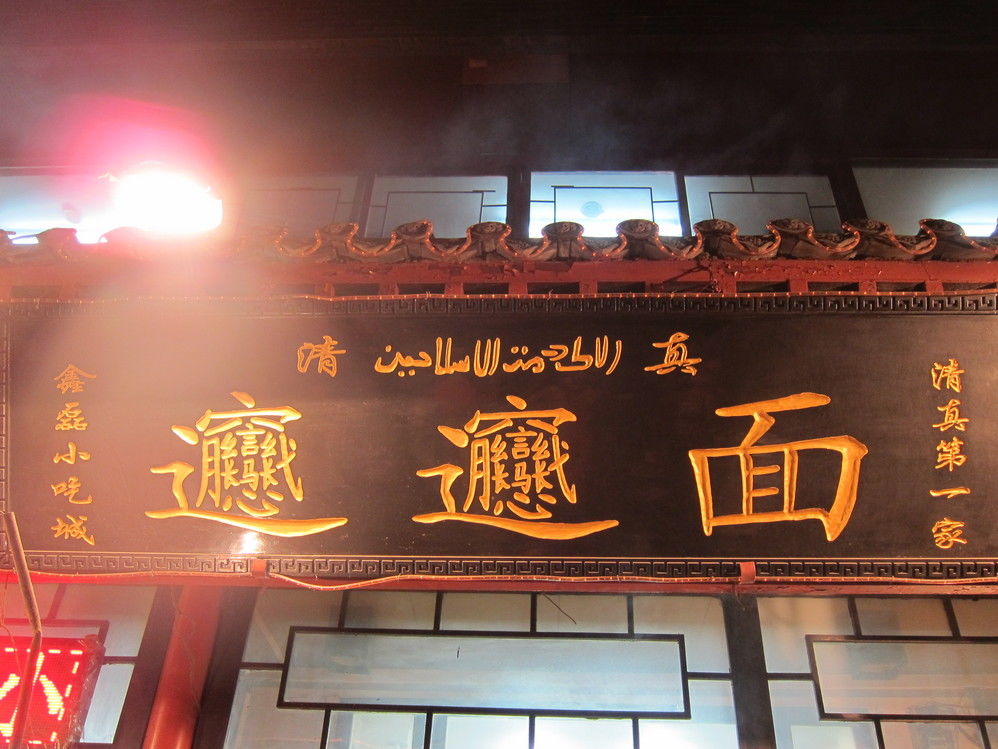 清 真
𰻞𰻞面
清真第一家
鑫磊小吃城